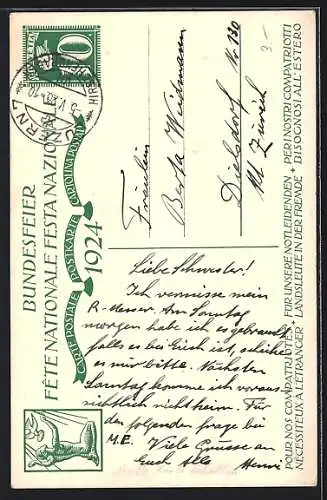 BUNDESFEIER
FÊTE NATIONALE FESTA NAZIONALE
CARTE POSTALE POSTKARTE CARTOLINA POSTALE
1924
HELVETIA
10
LUZERN
HIRSCH
3.-
Fräulein
Berta Weidmann
Dielsdorf Nr 130
Kt Zürich
Liebe Schwester!
Ich vermisse mein
R-Messer. Am Sonntag
morgen habe ich es gebraucht
falls es bei Euch ist, schicke
es mir bitte. Nächsten
Sonntag komme ich voraus-
sichtlich nicht heim. Für
den folgenden frage bei
M.E. Viele Grüsse an
Euch Alle Henri
POUR NOS COMPATRIOTES FÜR UNSERE NOTLEIDENDEN + PER I NOSTRI COMPATRIOTTI
NÉCESSITEUX À L'ÉTRANGER LANDSLEUTE IN DER FREMDE BISOGNOSI ALL'ESTERO